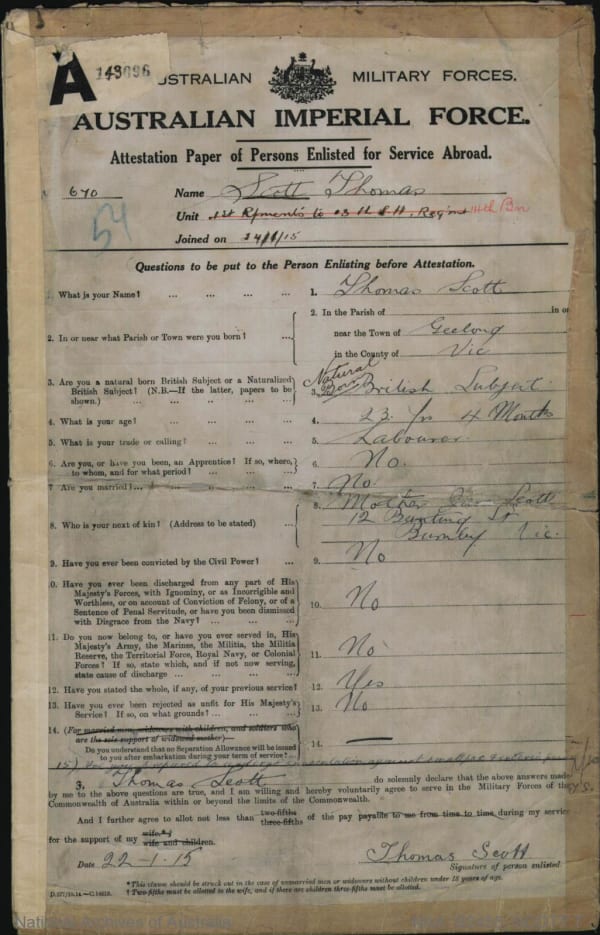 A 143096
AUSTRALIAN MILITARY FORCES.
AUSTRALIAN IMPERIAL FORCE.
Attestation Paper of Persons Enlisted for Service Abroad.
670 Name Scott Thomas
54 Unit 1st Rfments to 13th L.H. Regmt 14th Bn
Joined on 24/1/15
Questions to be put to the Person Enlisting before Attestation.
1. What is your Name? ... ... ... ... 1. Thomas Scott
2. In or near what Parish or Town were you born? ... ... 2. In the Parish of in or
near the Town of Geelong
in the County of Vic
3. Are you a natural born British Subject or a Naturalized
British Subject? (N.B.—If the latter, papers to be
shown.) ... ... ... ... 3. Natural Born British Subject
4. What is your age? ... ... ... ... 4. 23 yrs 4 Months
5. What is your trade or calling? ... ... ... 5. Labourer
6. Are you, or have you been, an Apprentice? If so, where,
to whom, and for what period? ... ... ... 6. No.
7. Are you married? ... ... ... ... 7. No.
8. Who is your next of kin? (Address to be stated) ... 8. Mother Scott
12 Bunting St
Burnley Vic.
9. Have you ever been convicted by the Civil Power? ... 9. No
10. Have you ever been discharged from any part of His
Majesty's Forces, with Ignominy, or as Incorrigible and
Worthless, or on account of Conviction of Felony, or of a
Sentence of Penal Servitude, or have you been dismissed
with Disgrace from the Navy? ... ... ... 10. No
11. Do you now belong to, or have you ever served in, His
Majesty's Army, the Marines, the Militia, the Militia
Reserve, the Territorial Force, Royal Navy, or Colonial
Forces? If so, state which, and if not now serving,
state cause of discharge ... ... ... ... 11. No
12. Have you stated the whole, if any, of your previous service? 12. Yes
13. Have you ever been rejected as unfit for His Majesty's
Service? If so, on what grounds? ... ... ... 13. No
14. (For married men, widowers with children, and soldiers who
are the sole support of widowed mother)—
Do you understand that no Separation Allowance will be issued
to you after embarkation during your term of service? 14. —
15) Are you prepared to undergo inoculation against smallpox & enteric fever
3. Thomas Scott do solemnly declare that the answers made
by me to the above questions are true, and I am willing and hereby voluntarily agree to serve in the Military Forces of the
Commonwealth of Australia within or beyond the limits of the Commonwealth.
And I further agree to allot not less than two-fifths three-fifths of the pay payable to me from time to time during my service
for the support of my wife.*† wife and children.
Date 22-1-15 Thomas Scott
Signature of person enlisted
*This clause should be struck out in the case of unmarried men or widowers without children under 18 years of age.
† Two-fifths must be allotted to the wife, and if there are children three-fifths must be allotted.
D.577/10.14.—C.14619.
National Archives of Australia